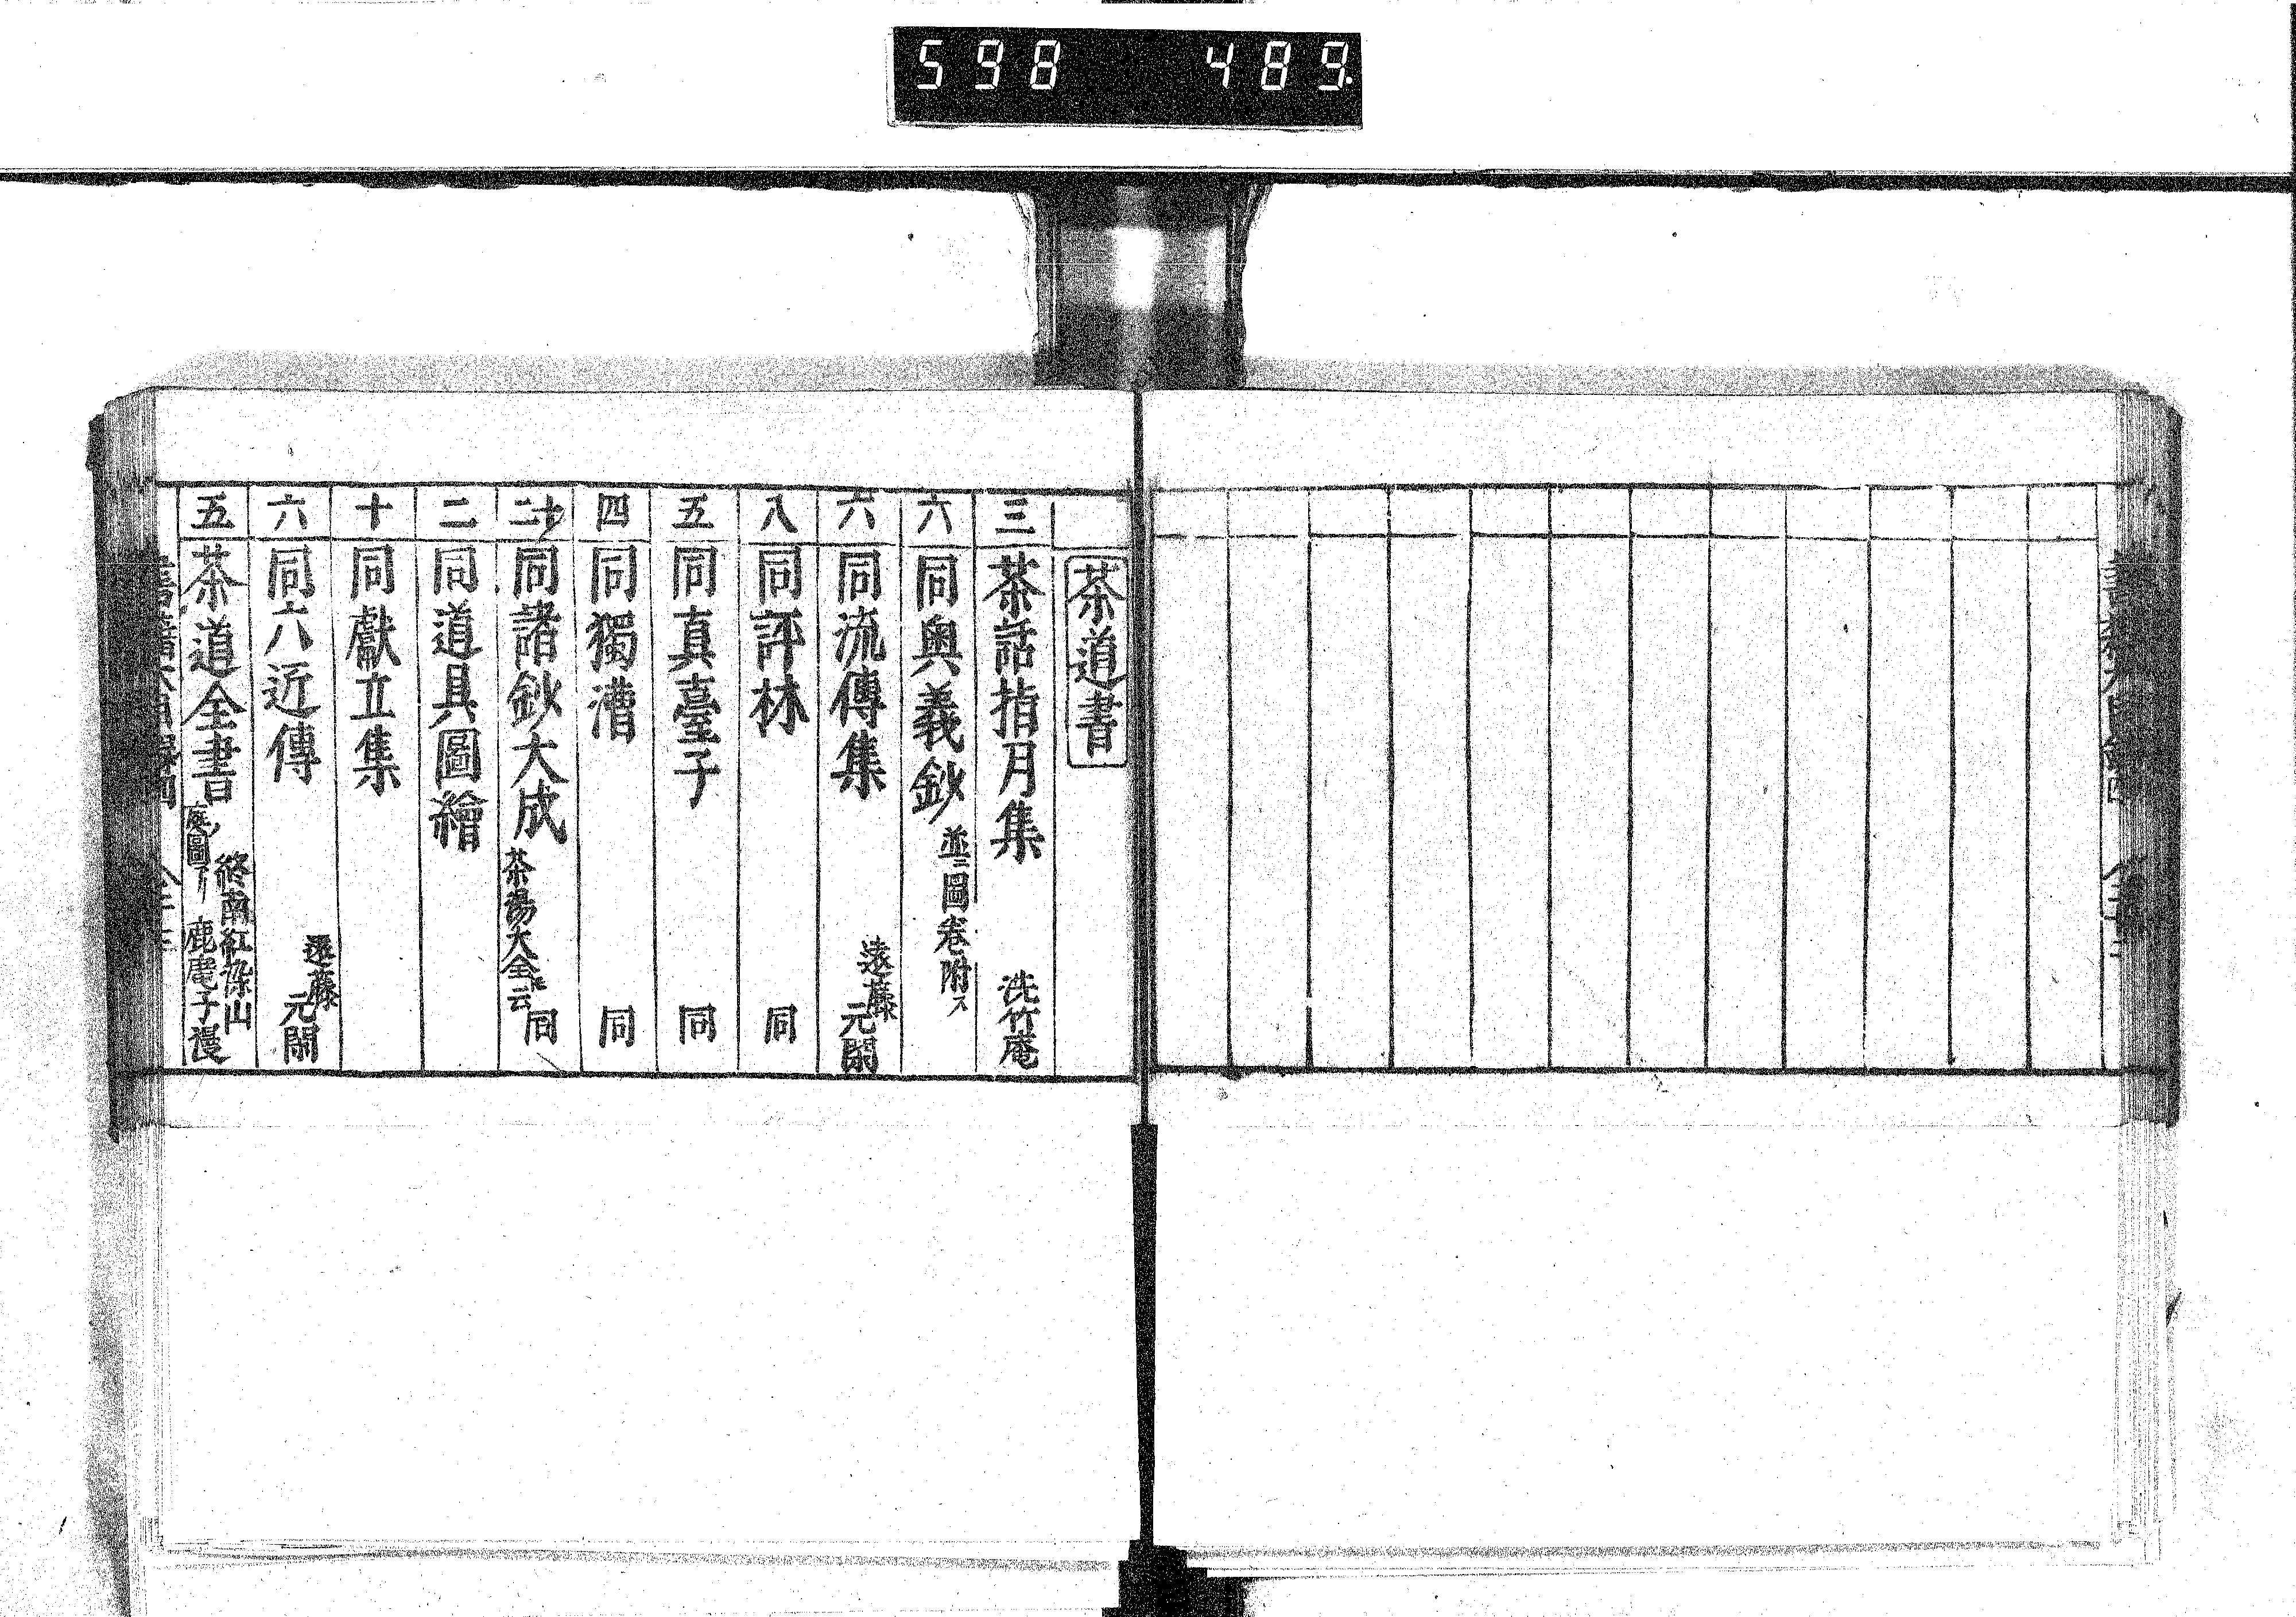 598 489
茶道書
三 茶話指月集 洗竹庵
六 同奥義鈔 並ニ圖卷附ス
六 同流傳集 遠藤元閑
八 同評林 同
五 同真臺子 同
四 同獨漕 同
二十 同諸鈔大成 茶湯大全トモ云 同
二 同道具圖繪
十 同獻立集
六 同六近傳 遠藤元閑
五 茶道全書 庭ノ圖アリ 終南紅染山鹿庵子漫